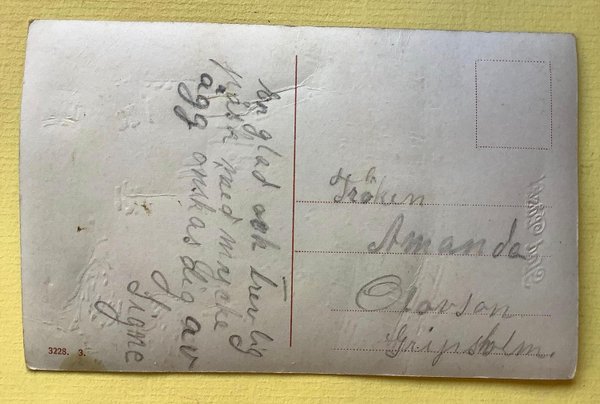 En glad och trevlig
Påsk med mycke
ägg önskas Dig av
Signe
Fröken
Amanda
Olavson
Gripsholm.
3228. 3.